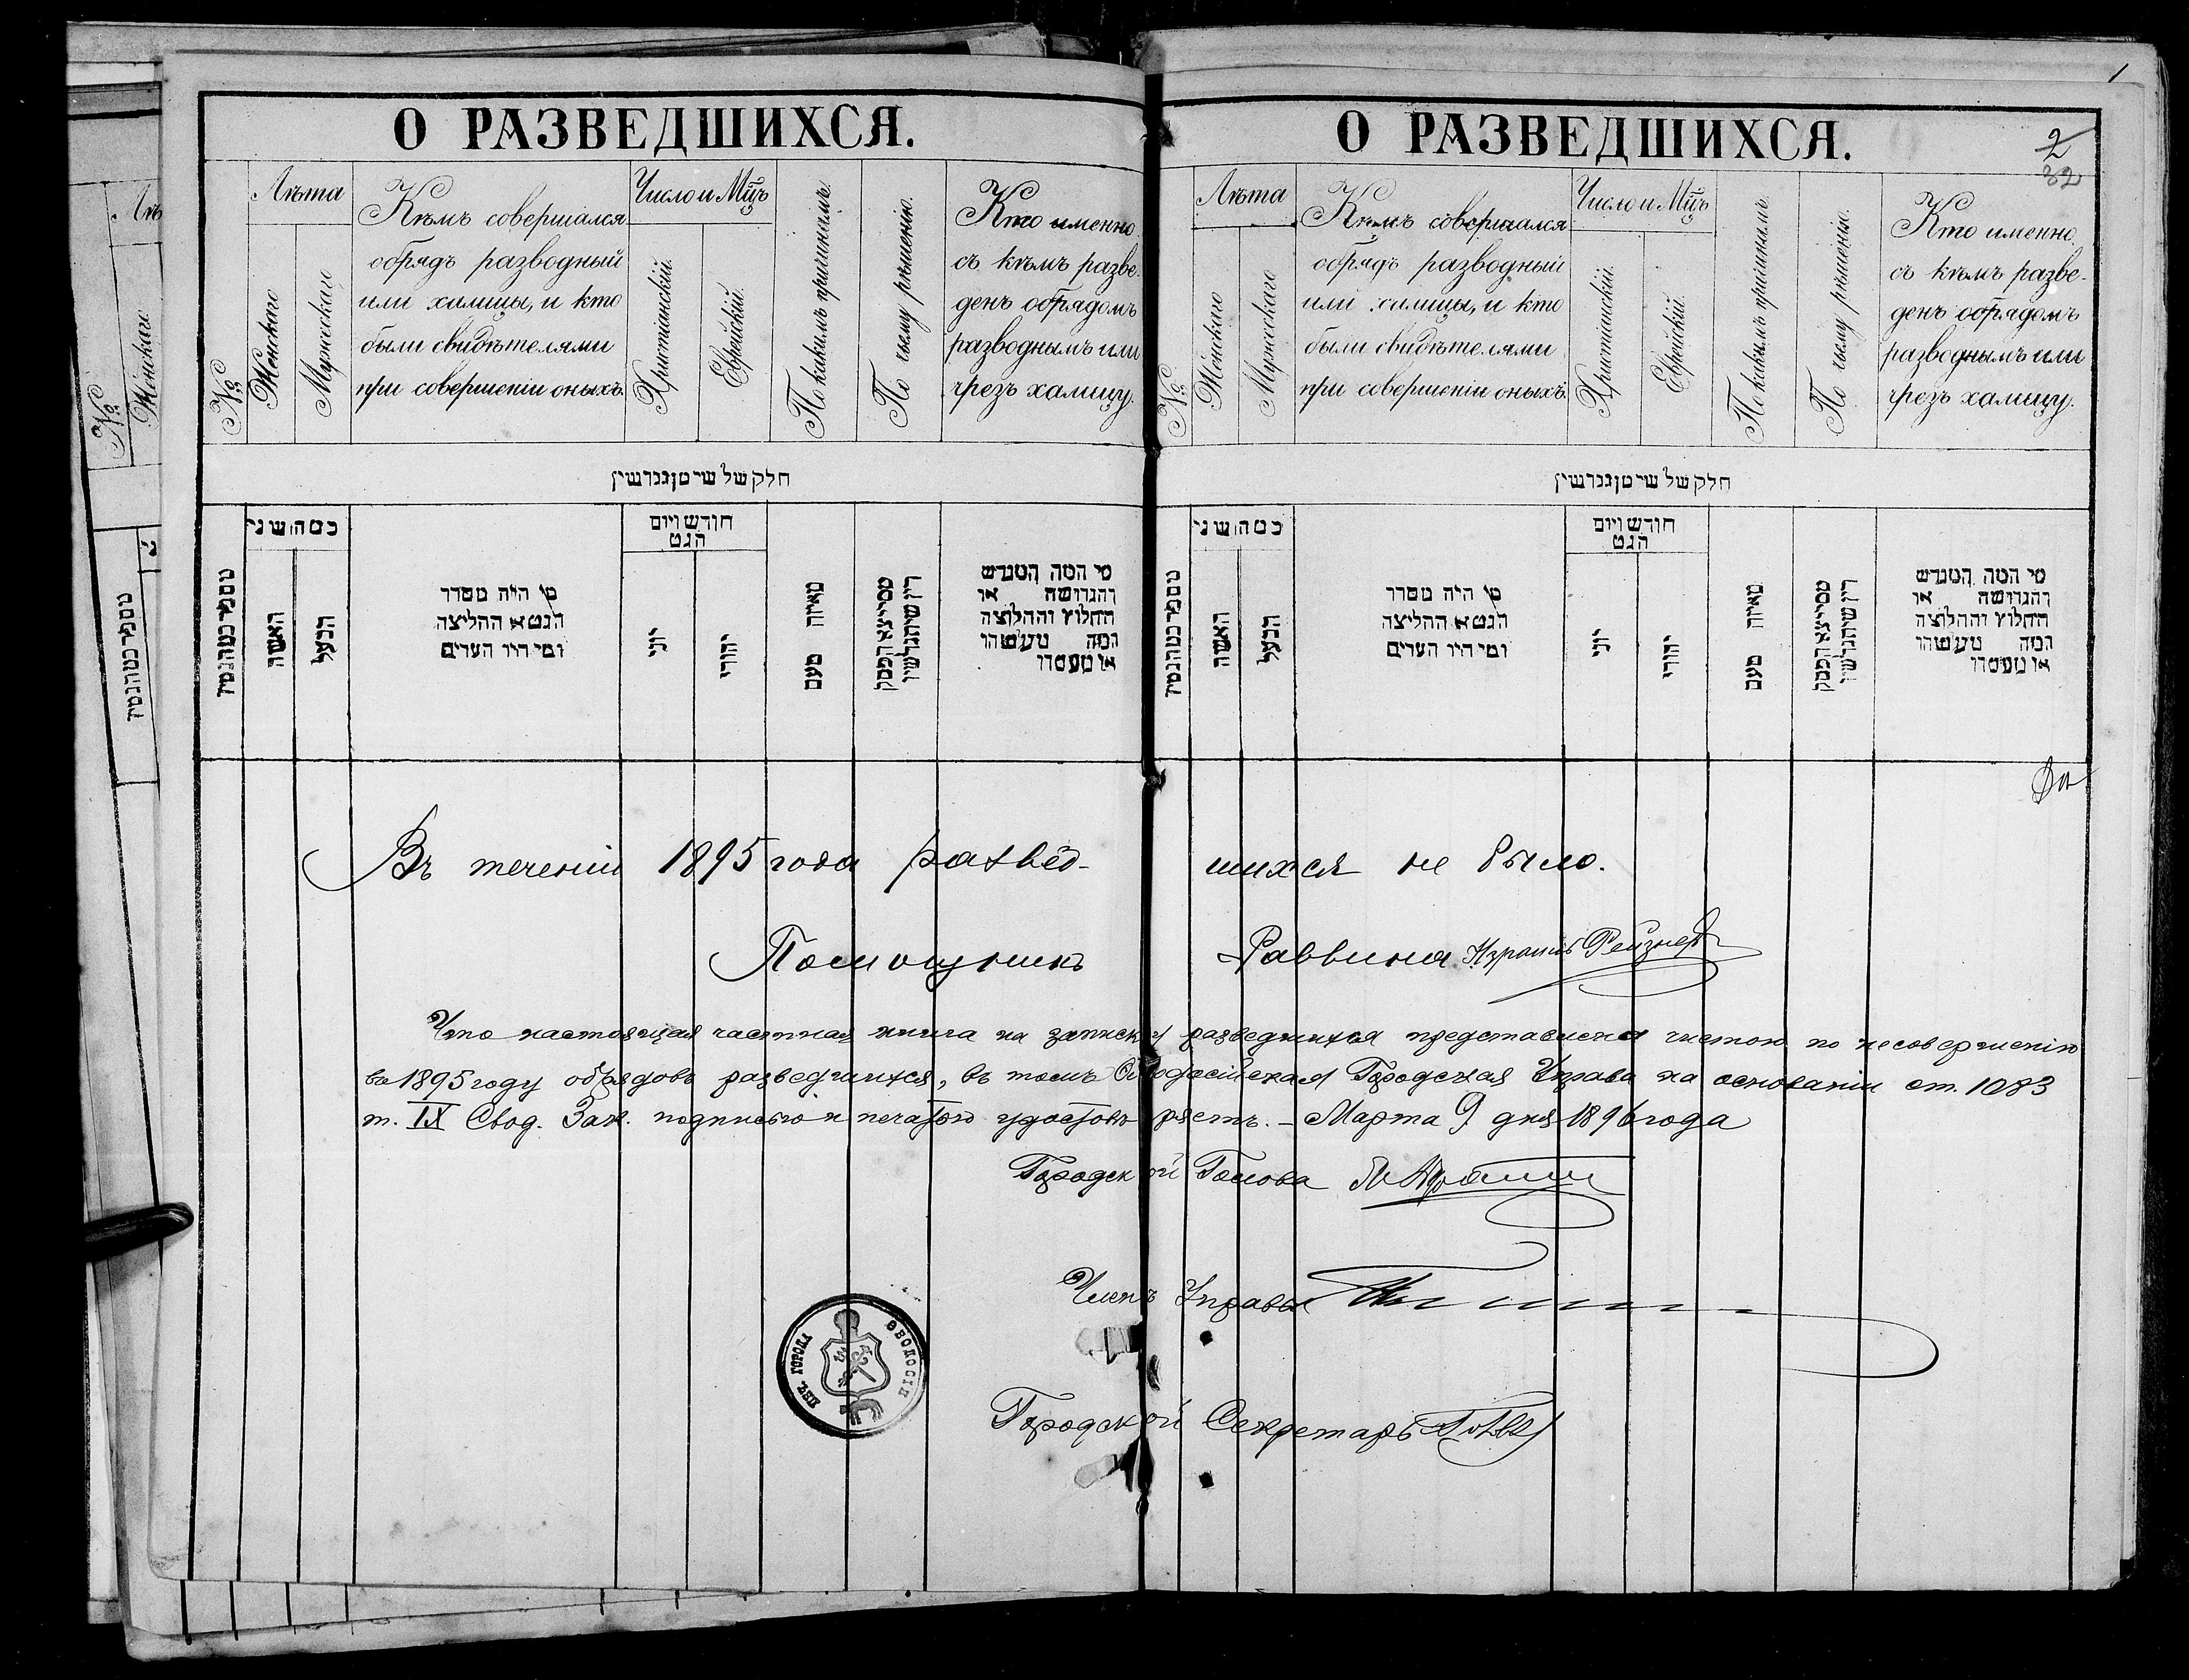 1
О РАЗВЕДШИХСЯ.
№
Лѣта
Женскаго
Мужескаго
Кѣмъ совершался
обрядъ разводный
или халицы, и кто
были свидѣтелями
при совершеніи оныхъ.
Число и Мцъ
Христіанскій.
Еврейскій.
По какимъ причинамъ.
По чьему рѣшенію.
Кто именно
съ кѣмъ разве-
денъ обрядомъ
разводнымъ или
чрезъ халицу.
חלק של שי מן גגרשין
כמה שני
האשה
הבעל
מי היה מסדר
הגט א החליצה
ומי היו העדים
חודש ויום
הגט
יוני
יהודי
מאיזה טעם
מי המה המגרש
והגרושה או
החלוץ והחלוצה
המה
О РАЗВЕДШИХСЯ.
2
32
№
Лѣта
Женскаго
Мужескаго
Кѣмъ совершался
обрядъ разводный
или халицы, и кто
были свидѣтелями
при совершеніи оныхъ.
Число и Мцъ
Христіанскій.
Еврейскій.
По какимъ причинамъ.
По чьему рѣшенію.
Кто именно
съ кѣмъ разве-
денъ обрядомъ
разводнымъ или
чрезъ халицу.
חלק של שי מן גגרשין
כמה שני
האשה
הבעל
מי היה מסדר
הגט א החליצה
ומי היו העדים
חודש ויום
הגט
יוני
יהודי
מאיזה טעם
מי המה המגרש
והגרושה או
החלוץ והחלוצה
המה
Въ теченіи 1895 года развед- шихся не было.
Помощникъ Раввина Израиль Рейзнеръ
Что настоящая частная книга на записку разведшихся представлена чистою по несовершенію
въ 1895 году обрядовъ разведшихся, въ томъ Ѳеодосійская Городская Управа на основаніи ст. 1083
т. IX Свод. Зак. подписью и печатью удостовѣряетъ. – Марта 9 дня 1896 года
Городской Голова
Членъ Управы
ѲЕОДОСІИ
Городской Секретарь